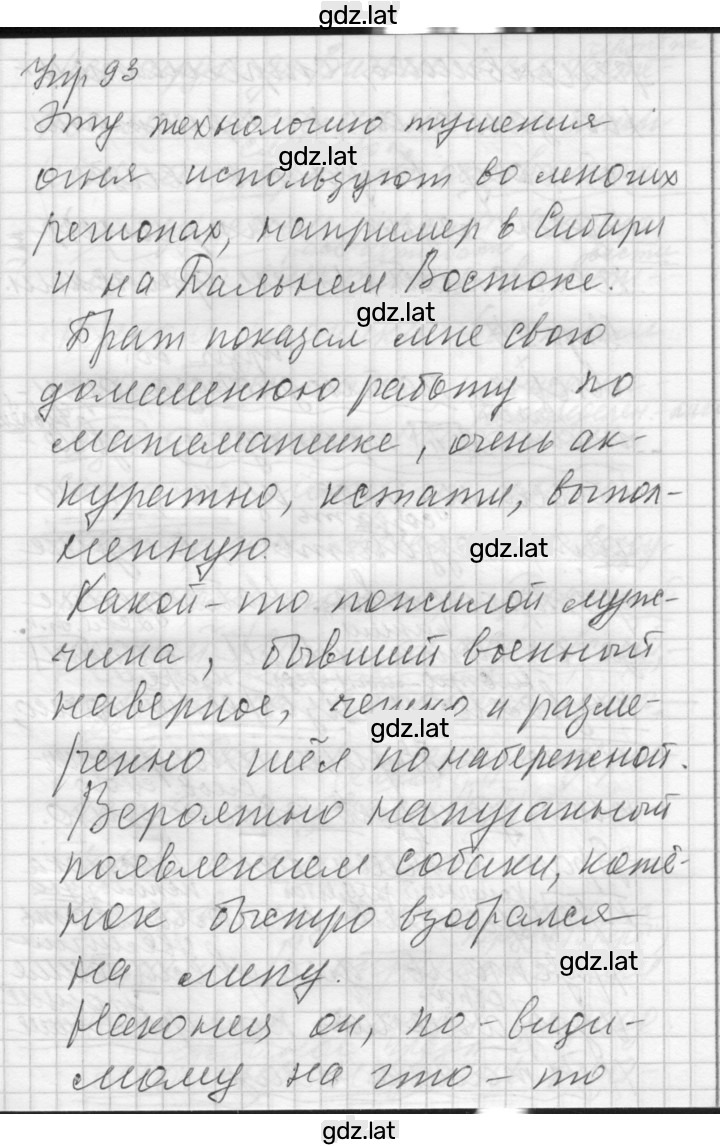 gdz.lat
Упр 93
Эту технологию тушения
gdz.lat
огня используют во многих
регионах, например в Сибири
и на Дальнем Востоке.
gdz.lat
Брат показал мне свою
домашнюю работу по
математике, очень ак-
куратно, кстати, выпол-
ненную.
gdz.lat
Какой-то пожилой муж-
чина, бывший военный
наверное, чётко и разме-
gdz.lat
ренно шёл по набережной.
Вероятно напуганный
появлением собаки, котё-
нок быстро взобрался
на липу.
gdz.lat
Наконец он, по-види-
мому на что-то
gdz.lat